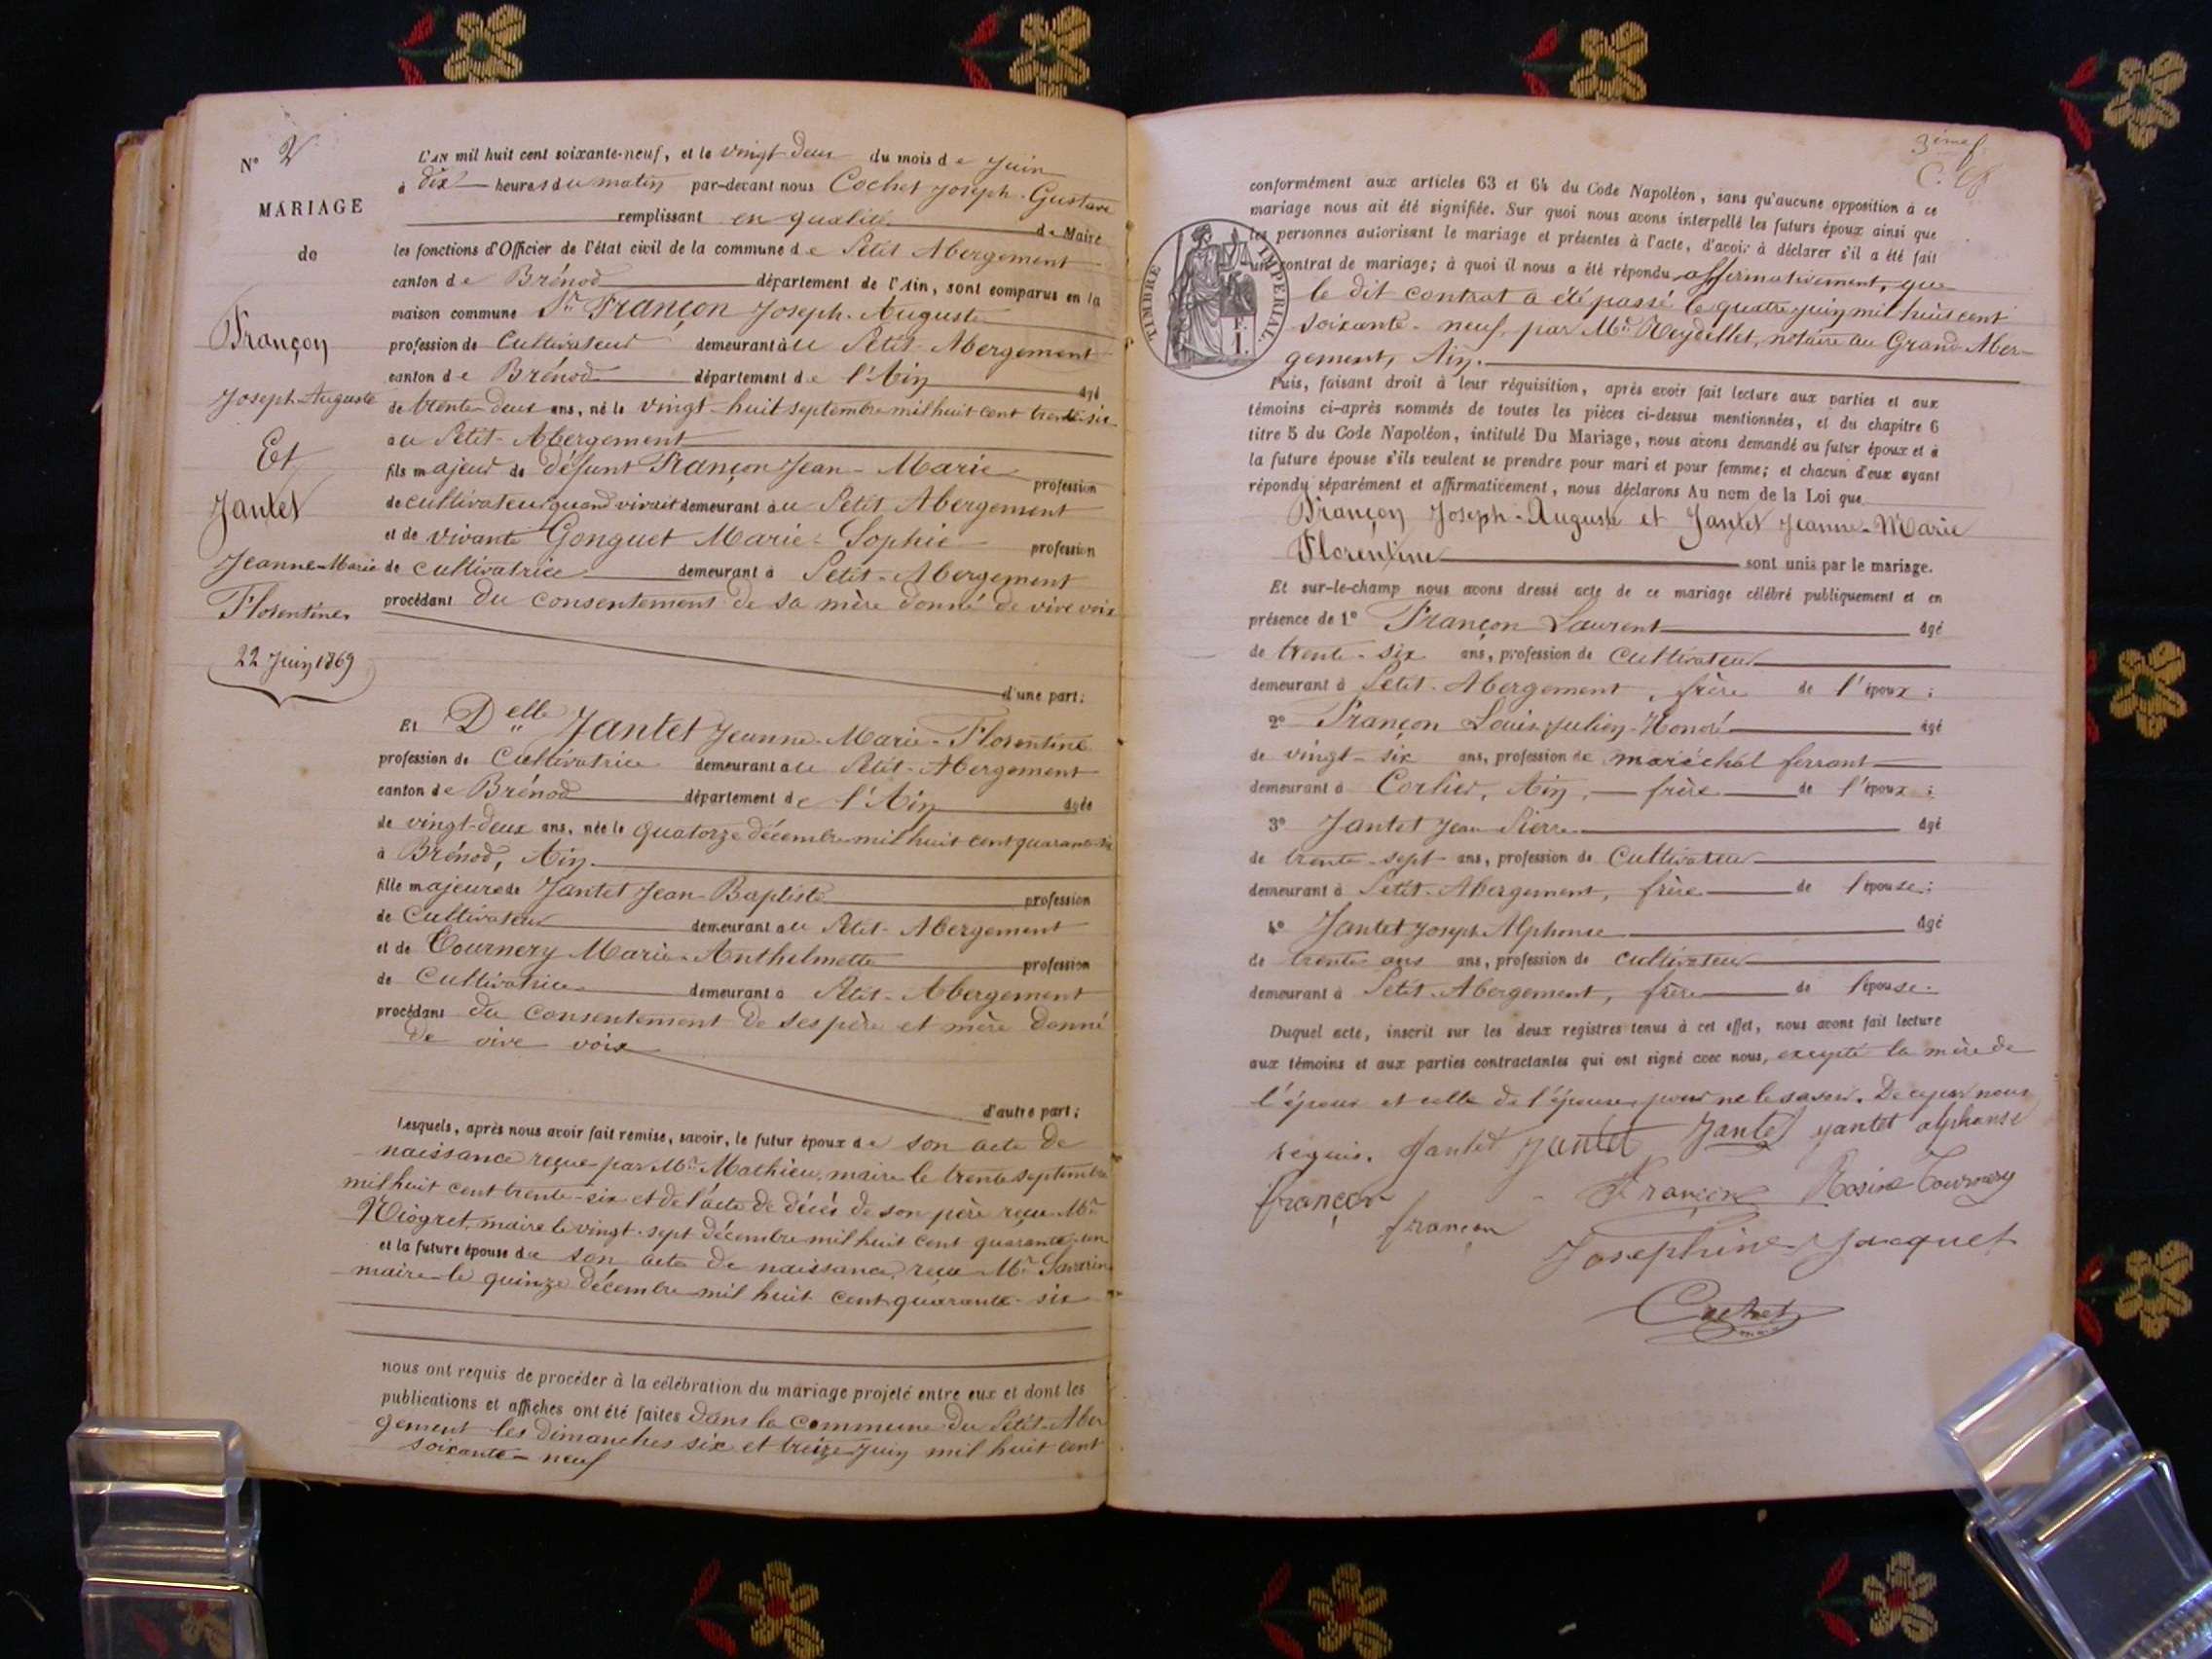 N° 2
MARIAGE
de
Françon
Joseph-Auguste
Et
Jantet
Jeanne-Marie
Florentine
22 Juin 1869
L'AN mil huit cent soixante-neuf, et le vingt-deux du mois de Juin
à dix heures du matin par-devant nous Cochet Joseph-Gustave
remplissant en qualité de Maire
les fonctions d'Officier de l'état civil de la commune de Petit Abergement
canton de Brénod département de l'Ain, sont comparus en la
maison commune Sr Françon Joseph-Auguste
profession de Cultivateur demeurant au Petit-Abergement
canton de Brénod département de l'Ain âgé
de trente-deux ans, né le vingt-huit septembre mil huit cent trente-six
au Petit-Abergement
fils majeur de défunt Françon Jean-Marie profession
de cultivateur quand vivait demeurant au Petit Abergement
et de vivante Gonguet Marie-Sophie profession
de cultivatrice demeurant à Petit-Abergement
procédant du consentement de sa mère donné de vive voix
d'une part;
Et Delle Jantet Jeanne-Marie-Florentine
profession de Cultivatrice demeurant au Petit-Abergement
canton de Brénod département de l'Ain âgée
de vingt-deux ans, née le quatorze décembre mil huit cent quarante-six
à Brénod, Ain.
fille majeure de Jantet Jean-Baptiste profession
de Cultivateur demeurant au Petit-Abergement
et de Tournery Marie-Anthelmette profession
de Cultivatrice demeurant à Petit-Abergement
procédant du consentement de ses père et mère donné
de vive voix
d'autre part;
Lesquels, après nous avoir fait remise, savoir, le futur époux de son acte de
naissance reçue par Mr Mathieu, maire le trente septembre
mil huit cent trente-six et de l'acte de décès de son père reçu Mr
Niogret, maire le vingt-sept décembre mil huit cent quarante-un
et la future épouse de son acte de naissance, reçu Mr Savarin
maire le quinze décembre mil huit cent quarante-six
nous ont requis de procéder à la célébration du mariage projeté entre eux et dont les
publications et affiches ont été faites dans la commune du Petit-Aber
gement les dimanches six et treize Juin mil huit cent
soixante-neuf
3ime f.
conformément aux articles 63 et 64 du Code Napoléon, sans qu'aucune opposition à ce
mariage nous ait été signifiée. Sur quoi nous avons interpellé les futurs époux ainsi que
les personnes autorisant le mariage et présentes à l'acte, d'avoir à déclarer s'il a été fait
un contrat de mariage; à quoi il nous a été répondu affirmativement, que
le dit contrat a été passé le quatre juin mil huit cent
soixante-neuf, par Mr Reydellet, notaire au Grand-Aber-
gement, Ain.
TIMBRE IMPÉRIAL
1 F.
Puis, faisant droit à leur réquisition, après avoir fait lecture aux parties et aux
témoins ci-après nommés de toutes les pièces ci-dessus mentionnées, et du chapitre 6
titre 5 du Code Napoléon, intitulé Du Mariage, nous avons demandé au futur époux et à
la future épouse s'ils veulent se prendre pour mari et pour femme; et chacun d'eux ayant
répondu séparément et affirmativement, nous déclarons Au nom de la Loi que
Françon Joseph-Auguste et Jantet Jeanne-Marie
Florentine sont unis par le mariage.
Et sur-le-champ nous avons dressé acte de ce mariage célébré publiquement et en
présence de 1° Françon Laurent âgé
de trente-six ans, profession de cultivateur
demeurant à Petit-Abergement, frère de l'époux;
2° Françon Louis-Julien-Honoré âgé
de vingt-six ans, profession de maréchal ferrant
demeurant à Corlier, Ain, frère de l'époux;
3° Jantet Jean Pierre âgé
de trente-sept ans, profession de Cultivateur
demeurant à Petit-Abergement, frère de l'épouse;
4° Jantet Joseph Alphonse âgé
de trente ans ans, profession de cultivateur
demeurant à Petit-Abergement, frère de l'épouse.
Duquel acte, inscrit sur les deux registres tenus à cet effet, nous avons fait lecture
aux témoins et aux parties contractantes qui ont signé avec nous, excepté la mère de
l'époux et celle de l'épouse, pour ne le savoir. De ce par nous
requis. Jantet Jantet Jantet jantet alphonse
françon Françon Rosine Tournery
françon
Josephine Jacquet
Cochet